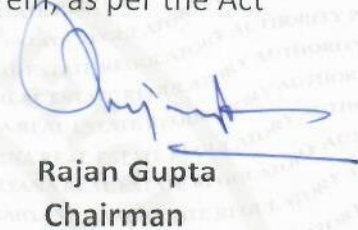 rein, as per the Act
Rajan Gupta
Chairman